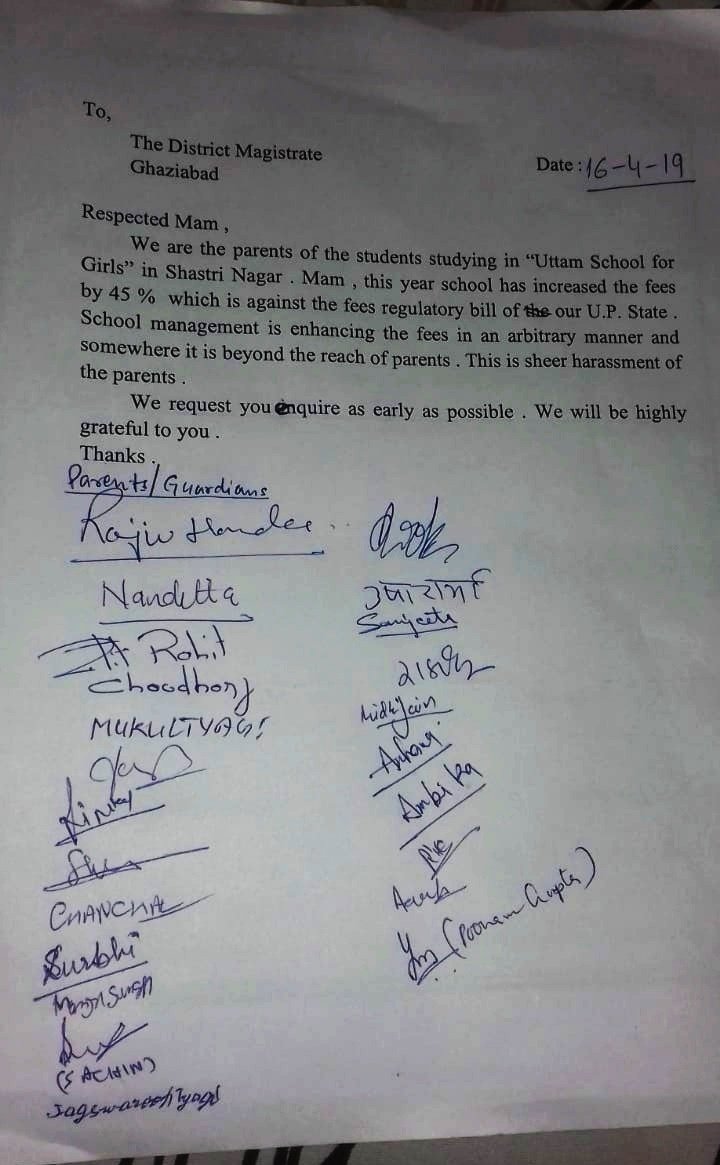 To,
The District Magistrate
Ghaziabad
Date : 16-4-19
Respected Mam ,
We are the parents of the students studying in “Uttam School for
Girls” in Shastri Nagar . Mam , this year school has increased the fees
by 45 % which is against the fees regulatory bill of the our U.P. State .
School management is enhancing the fees in an arbitrary manner and
somewhere it is beyond the reach of parents . This is sheer harassment of
the parents .
We request you enquire as early as possible . We will be highly
grateful to you .
Thanks .
Parents/Guardians
Rajiv
Nanditta
Rohit
Choudhary
MUKUL TYAGI
Rinky
CHANCHAL
Surbhi
(SACHIN)
उषा शर्मा
Sangeeta
Nidhi Jain
Ambika
(Poonam Gupta)